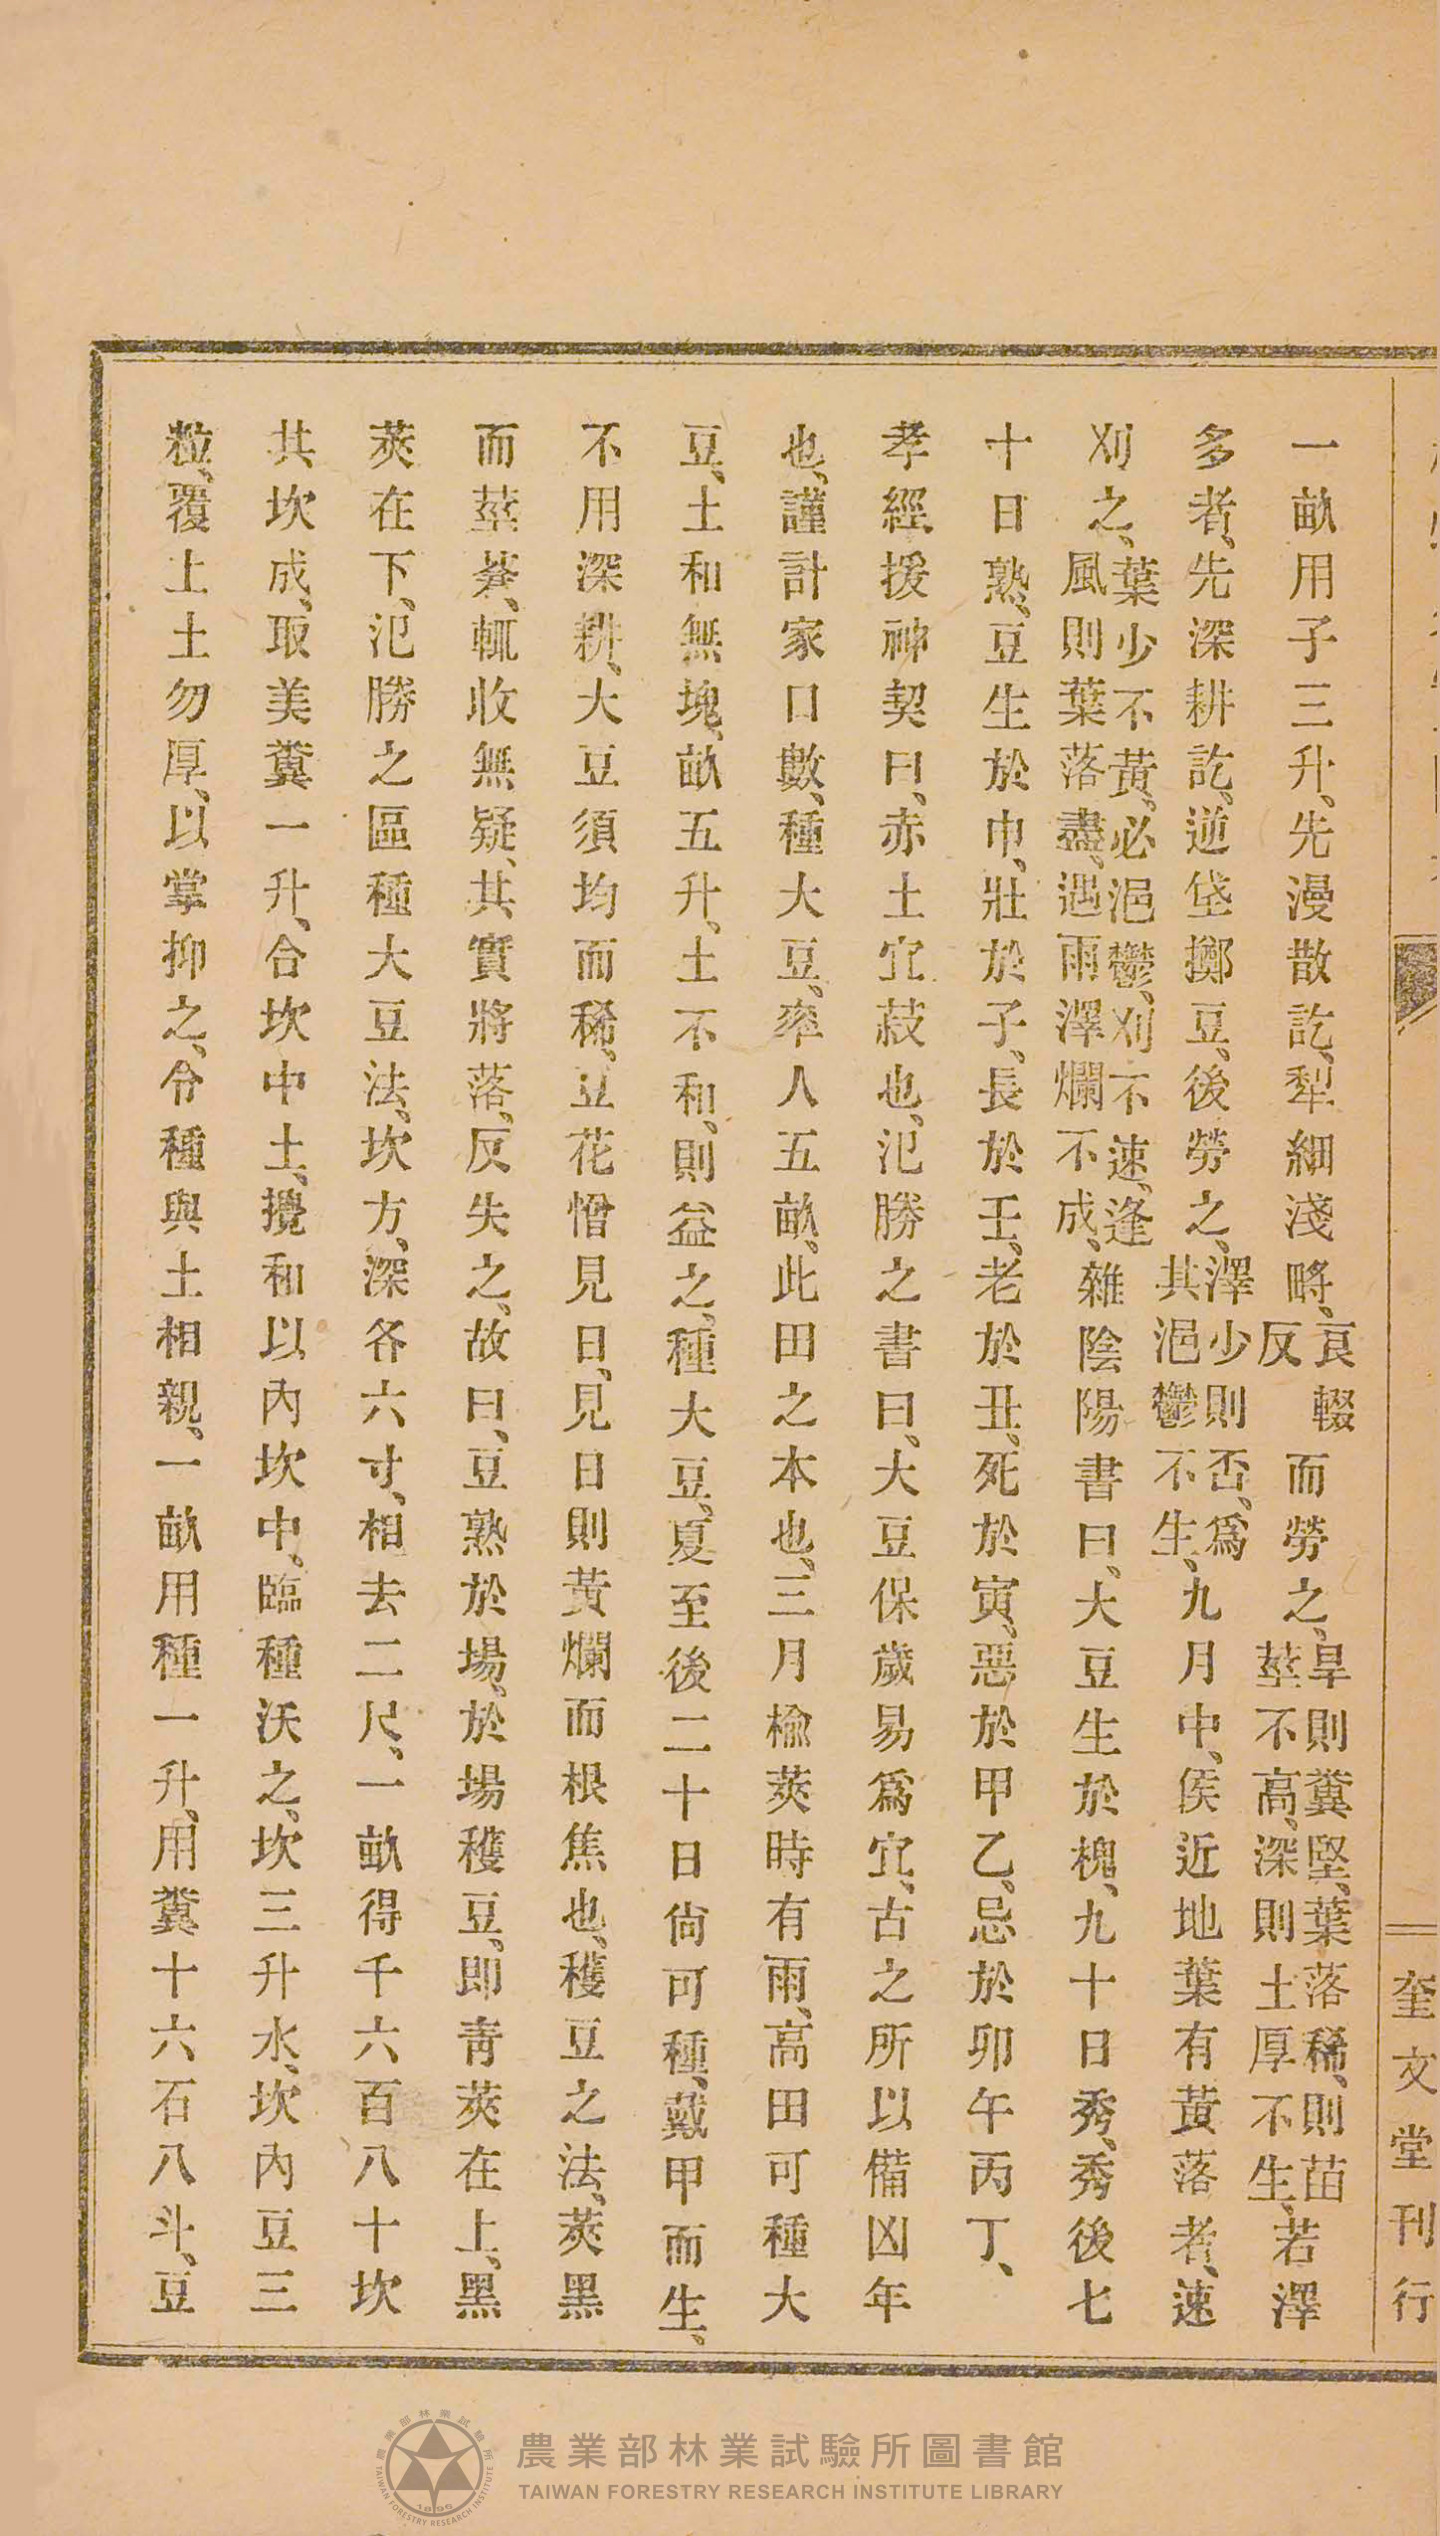 一畝用子三升、先漫散訖、犁細淺㽟、良輟反而勞之、旱則糞堅、葉落稀、則苗莖不高、深則土厚不生、若澤
多者、先深耕訖、逆垡擲豆、後勞之、澤少則否、爲其浥鬱不生、九月中、侯近地葉有黃落者、速
刈之、葉少不黃、必浥鬱、刈不速、逢風則葉落盡、遇雨澤爛不成、雜陰陽書曰、大豆生於槐、九十日秀、秀後七
十日熟、豆生於申、壯於子、長於壬、老於丑、死於寅、惡於甲乙、忌於卯午丙丁、
孝經援神契曰、赤土宜菽也、氾勝之書曰、大豆保歲易爲宜、古之所以備凶年
也、謹計家口數、種大豆、率人五畝、此田之本也、三月楡莢時有雨、高田可種大
豆、土和無塊、畝五升、土不和、則益之、種大豆、夏至後二十日尙可種、戴甲而生、
不用深耕、大豆須均而稀、豆花憎見日、見日則黃爛而根焦也、穫豆之法、莢黑
而莖蒼、輒收無疑、其實將落、反失之、故曰、豆熟於場、於場穫豆、即靑莢在上、黑
莢在下、氾勝之區種大豆法、坎方、深各六寸、相去二尺、一畝得千六百八十坎
其坎成、取美糞一升、合坎中土、攪和以內坎中、臨種沃之、坎三升水、坎內豆三
粒、覆上土勿厚、以掌抑之、令種與土相親、一畝用種一升、用糞十六石八斗、豆
奎文堂刊行
農業部林業試驗所圖書館
TAIWAN FORESTRY RESEARCH INSTITUTE LIBRARY